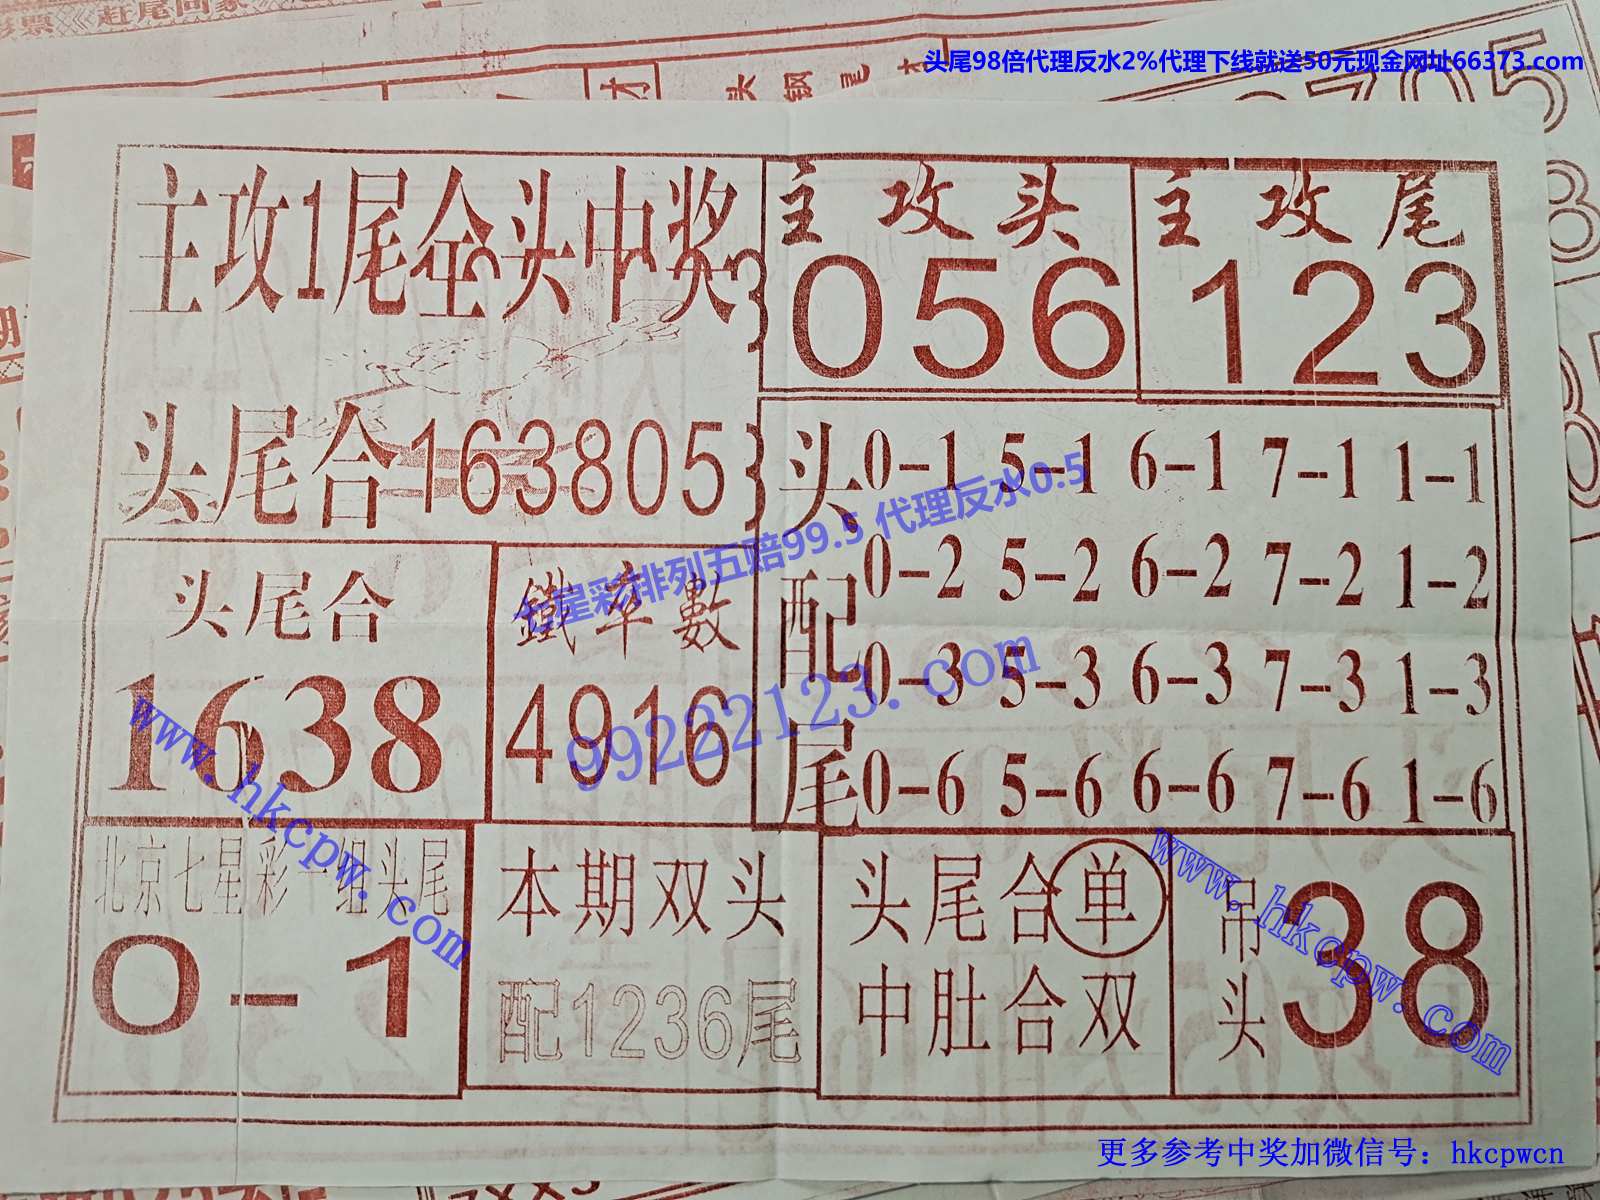 彩票《赶尾回家》
头尾98倍代理反水2%代理下线就送50元现金网址66373.com
头 钢 尾
主攻1尾全头中奖
主攻头
056
主攻尾
123
头尾合163805
头配尾
0-1 5-1 6-1 7-1 1-1
0-2 5-2 6-2 7-2 1-2
0-3 5-3 6-3 7-3 1-3
0-6 5-6 6-6 7-6 1-6
七星彩排列五赔99.5 代理反水0.5
头尾合
1638
鐵率數
4916
99222123.com
www.hkcpw.com
北京七星彩一组头尾
0-1
本期双头
配1236尾
头尾合单
中肚合双
吊头
38
www.hkcpw.com
更多参考中奖加微信号：hkcpwcn